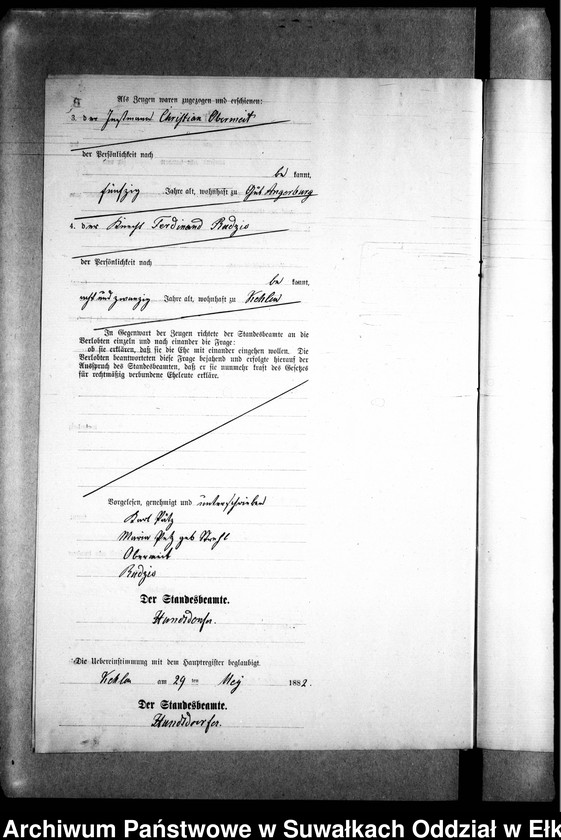 Als Zeugen waren zugezogen und erschienen:
3. der Instmann Christian Obermeit
der Persönlichkeit nach
be kannt,
fünfzig Jahre alt, wohnhaft zu Gut Angerburg
4. der Knecht Ferdinand Radzio
der Persönlichkeit nach
be kannt,
acht und zwanzig Jahre alt, wohnhaft zu Kehlen
In Gegenwart der Zeugen richtete der Standesbeamte an die
Verlobten einzeln und nach einander die Frage:
ob sie erklären, daß sie die Ehe mit einander eingehen wollen. Die
Verlobten beantworteten diese Frage bejahend und erfolgte hierauf der
Ausspruch des Standesbeamten, daß er sie nunmehr kraft des Gesetzes
für rechtmäßig verbundene Eheleute erkläre.
Vorgelesen, genehmigt und unterschrieben
Karl
Maria geb
Obermeit
Radzio
Der Standesbeamte.
Hundsdorfer.
Die Uebereinstimmung mit dem Hauptregister beglaubigt.
Kehlen am 29 ten Mai 1882.
Der Standesbeamte.
Hundsdorfer.
Archiwum Państwowe w Suwałkach Oddział w Ełk